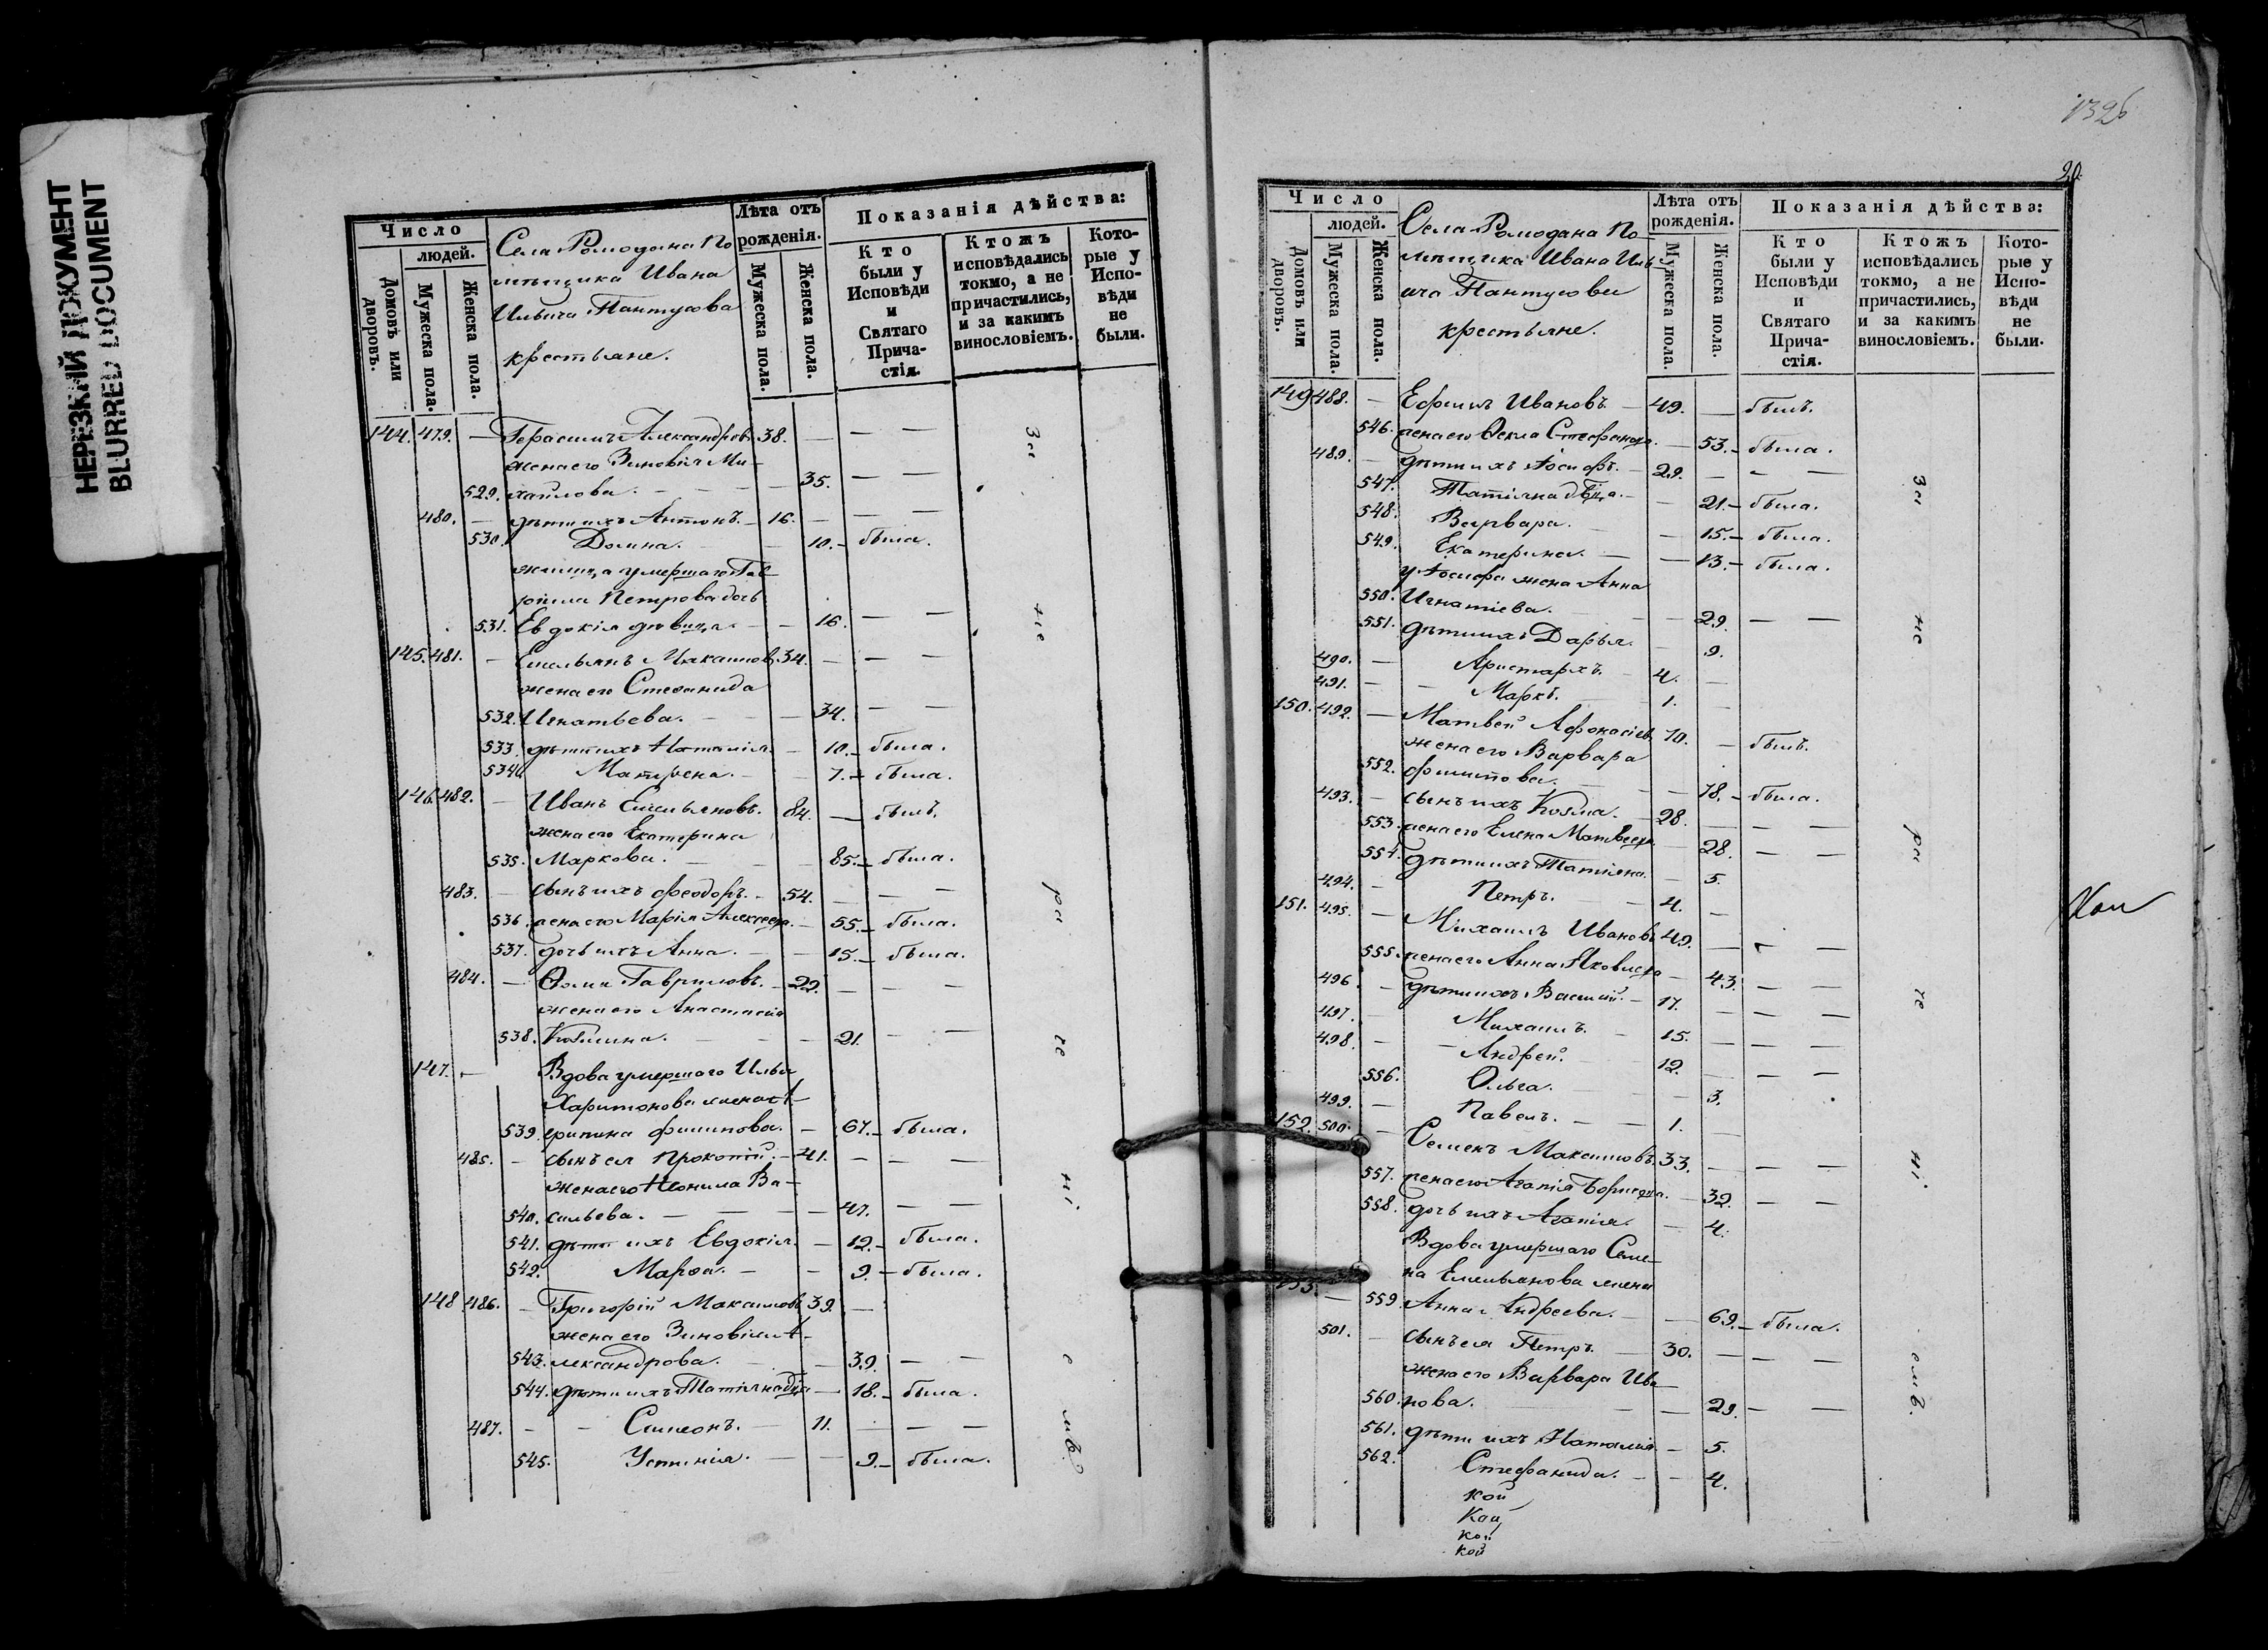 НЕРЕЗКИЙ ДОКУМЕНТ
BLURRED DOCUMENT
Число
людей.
Домовъ или дворовъ.
Мужеска пола.
Женска пола.
Села Ромодана По
мѣщика Ивана
Ильича Пантусова
крестьяне.
Лѣта отъ рожденія.
Мужеска пола.
Женска пола.
Показанія дѣйства:
Кто были у Исповѣди и Святаго Прича-стія.
Ктожъ исповѣдались токмо, а не причастились, и за какимъ винословіемъ.
Кото-рые у Испо-вѣди не были.
144. 479. — Герасимъ Александров. 38. — — —
жена его Зиновія Ми-
529. хайлова. — — — 35. — —
480. — дѣти ихъ Антонъ. — 16. — — —
530. Домна. — 10. — была.
умершаго Гав
ріила Петрова дочь
531. Евдокія дѣвица. — 16. — —
145. 481. — Емельянъ Максимов. 34. — — —
жена его Стефанида
532. Игнатьева. — — — 34. — —
533. дѣти ихъ Наталія. — 10. — была.
534. Матрена. — 7. — была.
146. 482. — Иванъ Емельяновъ. 84. — былъ.
жена его Екатерина
535. Маркова. — — 85. — была.
483. — сынъ ихъ Феодоръ. — 54. — — —
536. жена его Марія Алексеева. — 55. — была.
537. дочь ихъ Анна. — — 15. — была.
484. — Ѳома Гавриловъ. — 22. — — —
жена его Анастасія
538. Козмина. — — — 21. — —
147. — Вдова умершаго Ильи
Харитонова жена А-
539. грипина Филипова. — 67. — была.
485. — сынъ ея Прокопій. — 41. — — —
жена его Неонила Ва-
540. сильева. — — — 47. — —
541. дѣти ихъ Евдокія. — 12. — была.
542. Марѳа. — — 9. — была.
148 486. — Григорій Максимовъ 39. —
жена его Зиновія А-
543. лександрова. — — 39. — —
544. дѣти ихъ Татіяна дѣва — 18. — была.
487. — — Симеонъ. — 11. — — —
545. Устинія. — — 9. — была.
За
не
ра
че
ні
е
мъ
132б
20.
Число
людей.
Домовъ или дворовъ.
Мужеска пола.
Женска пола.
Села Ромодана По-
мѣщика Ивана Иль-
ича Пантусова
крестьяне.
Лѣта отъ рожденія.
Мужеска пола.
Женска пола.
Показанія дѣйства:
Кто были у Исповѣди и Святаго Прича-стія.
Ктожъ исповѣдались токмо, а не причастились, и за какимъ винословіемъ.
Кото-рые у Испо-вѣди не были.
149 488. — Ефимъ Ивановъ. — 49. — былъ.
546. жена его Ѳекла Стефанова. — 53. — была.
489. — дѣти ихъ Іосифъ. — 29. — — —
547. Татіяна дѣвца. — — 21. — была.
548. Варвара. — — 15. — была.
549. Екатерина. — — 13. — была.
у Іосифа жена Анна
550. Игнатіева. — — 29. — —
551. дѣти ихъ Дарья. — 9.
490. — Аристархъ. — 4. —
491. — — Маркъ. — 1. —
150. 492. — Матвей Афонасіев. 70. — былъ.
жена его Варвара
552. Филипова. — — 78. — была.
493. — сынъ ихъ Козма. — 28. — — —
553. жена его Елена Матвеева — 28. — —
554. дѣти ихъ Татіяна. — 5.
494. — Петръ. — — 4. —
151. 495. — Михаилъ Ивановъ 49. — — —
555. жена его Анна Яковлева — 43. — —
496. — дѣти ихъ Василій. — 17. — — —
497. — Михаилъ. — 15. — — —
498. — — Андрей. — 12. — — —
556. Ольга. — — 3.
499. — Павелъ. — — 1. —
152. 500. — Семенъ Максимовъ. 33. — — —
557. жена его Агапія Борисова. — 32. — —
558. дочь ихъ Агапія. — 4.
Вдова умершаго Семе-
на Емельянова жена
153. — 559. Анна Андреева. — — 69. — была.
501. — сынъ ея Петръ. — 30. — — —
жена его Варвара Ива-
560. нова. — — 29. — —
561. дѣти ихъ Наталія — 5.
562. Стефанида. — — 4.
За
не
ра
че
ні
емъ.
кой
кой
кой
кой